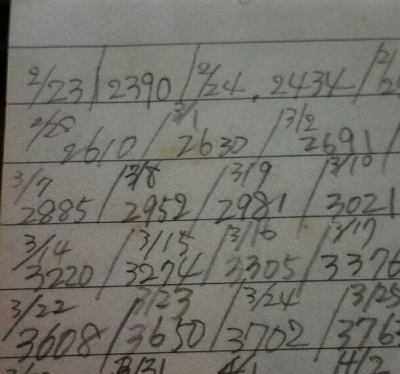 2/23 2390 2/24 2434
2/28 2610 3/1 2630 3/2 2691
3/7 2885 3/8 2952 3/9 2981 3/10 3021
3/14 3220 3/15 3274 3/16 3305 3/17 3376
3/22 3608 3/23 3650 3/24 3702 3/25 376
3/31 4/1 4/2